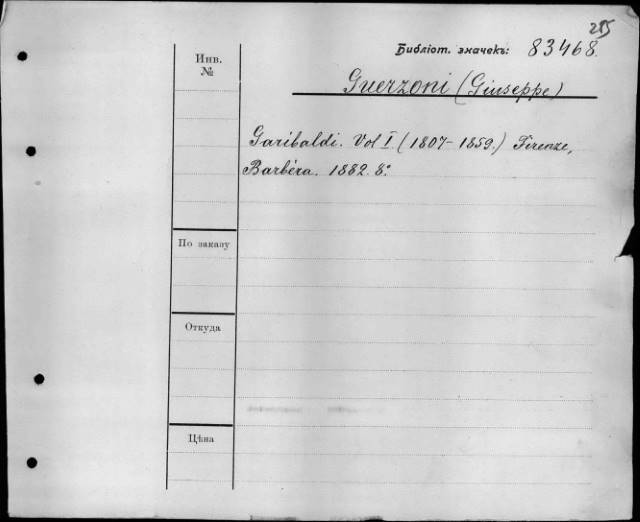 285
Библіот. значекъ: 83468.
Инв.
№
Guerzoni (Giuseppe)
Garibaldi. Vol I. (1807-1859.) Firenze,
Barbéra. 1882. 8º
По заказу
Откуда
Цѣна